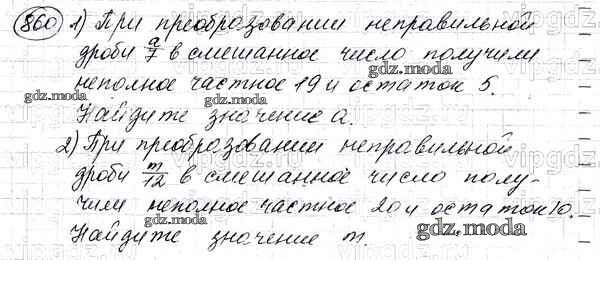 860 1) При преобразовании неправильной
дроби a/7 в смешанное число получили
неполное частное 19 и остаток 5.
Найдите значение a.
2) При преобразовании неправильной
дроби m/12 в смешанное число полу-
чили неполное частное 20 и остаток 10.
Найдите значение m.
gdz.moda
gdz.moda
gdz.moda
gdz.moda
gdz.moda
vipgdz.net
vipgdz.net
vipgdz.net